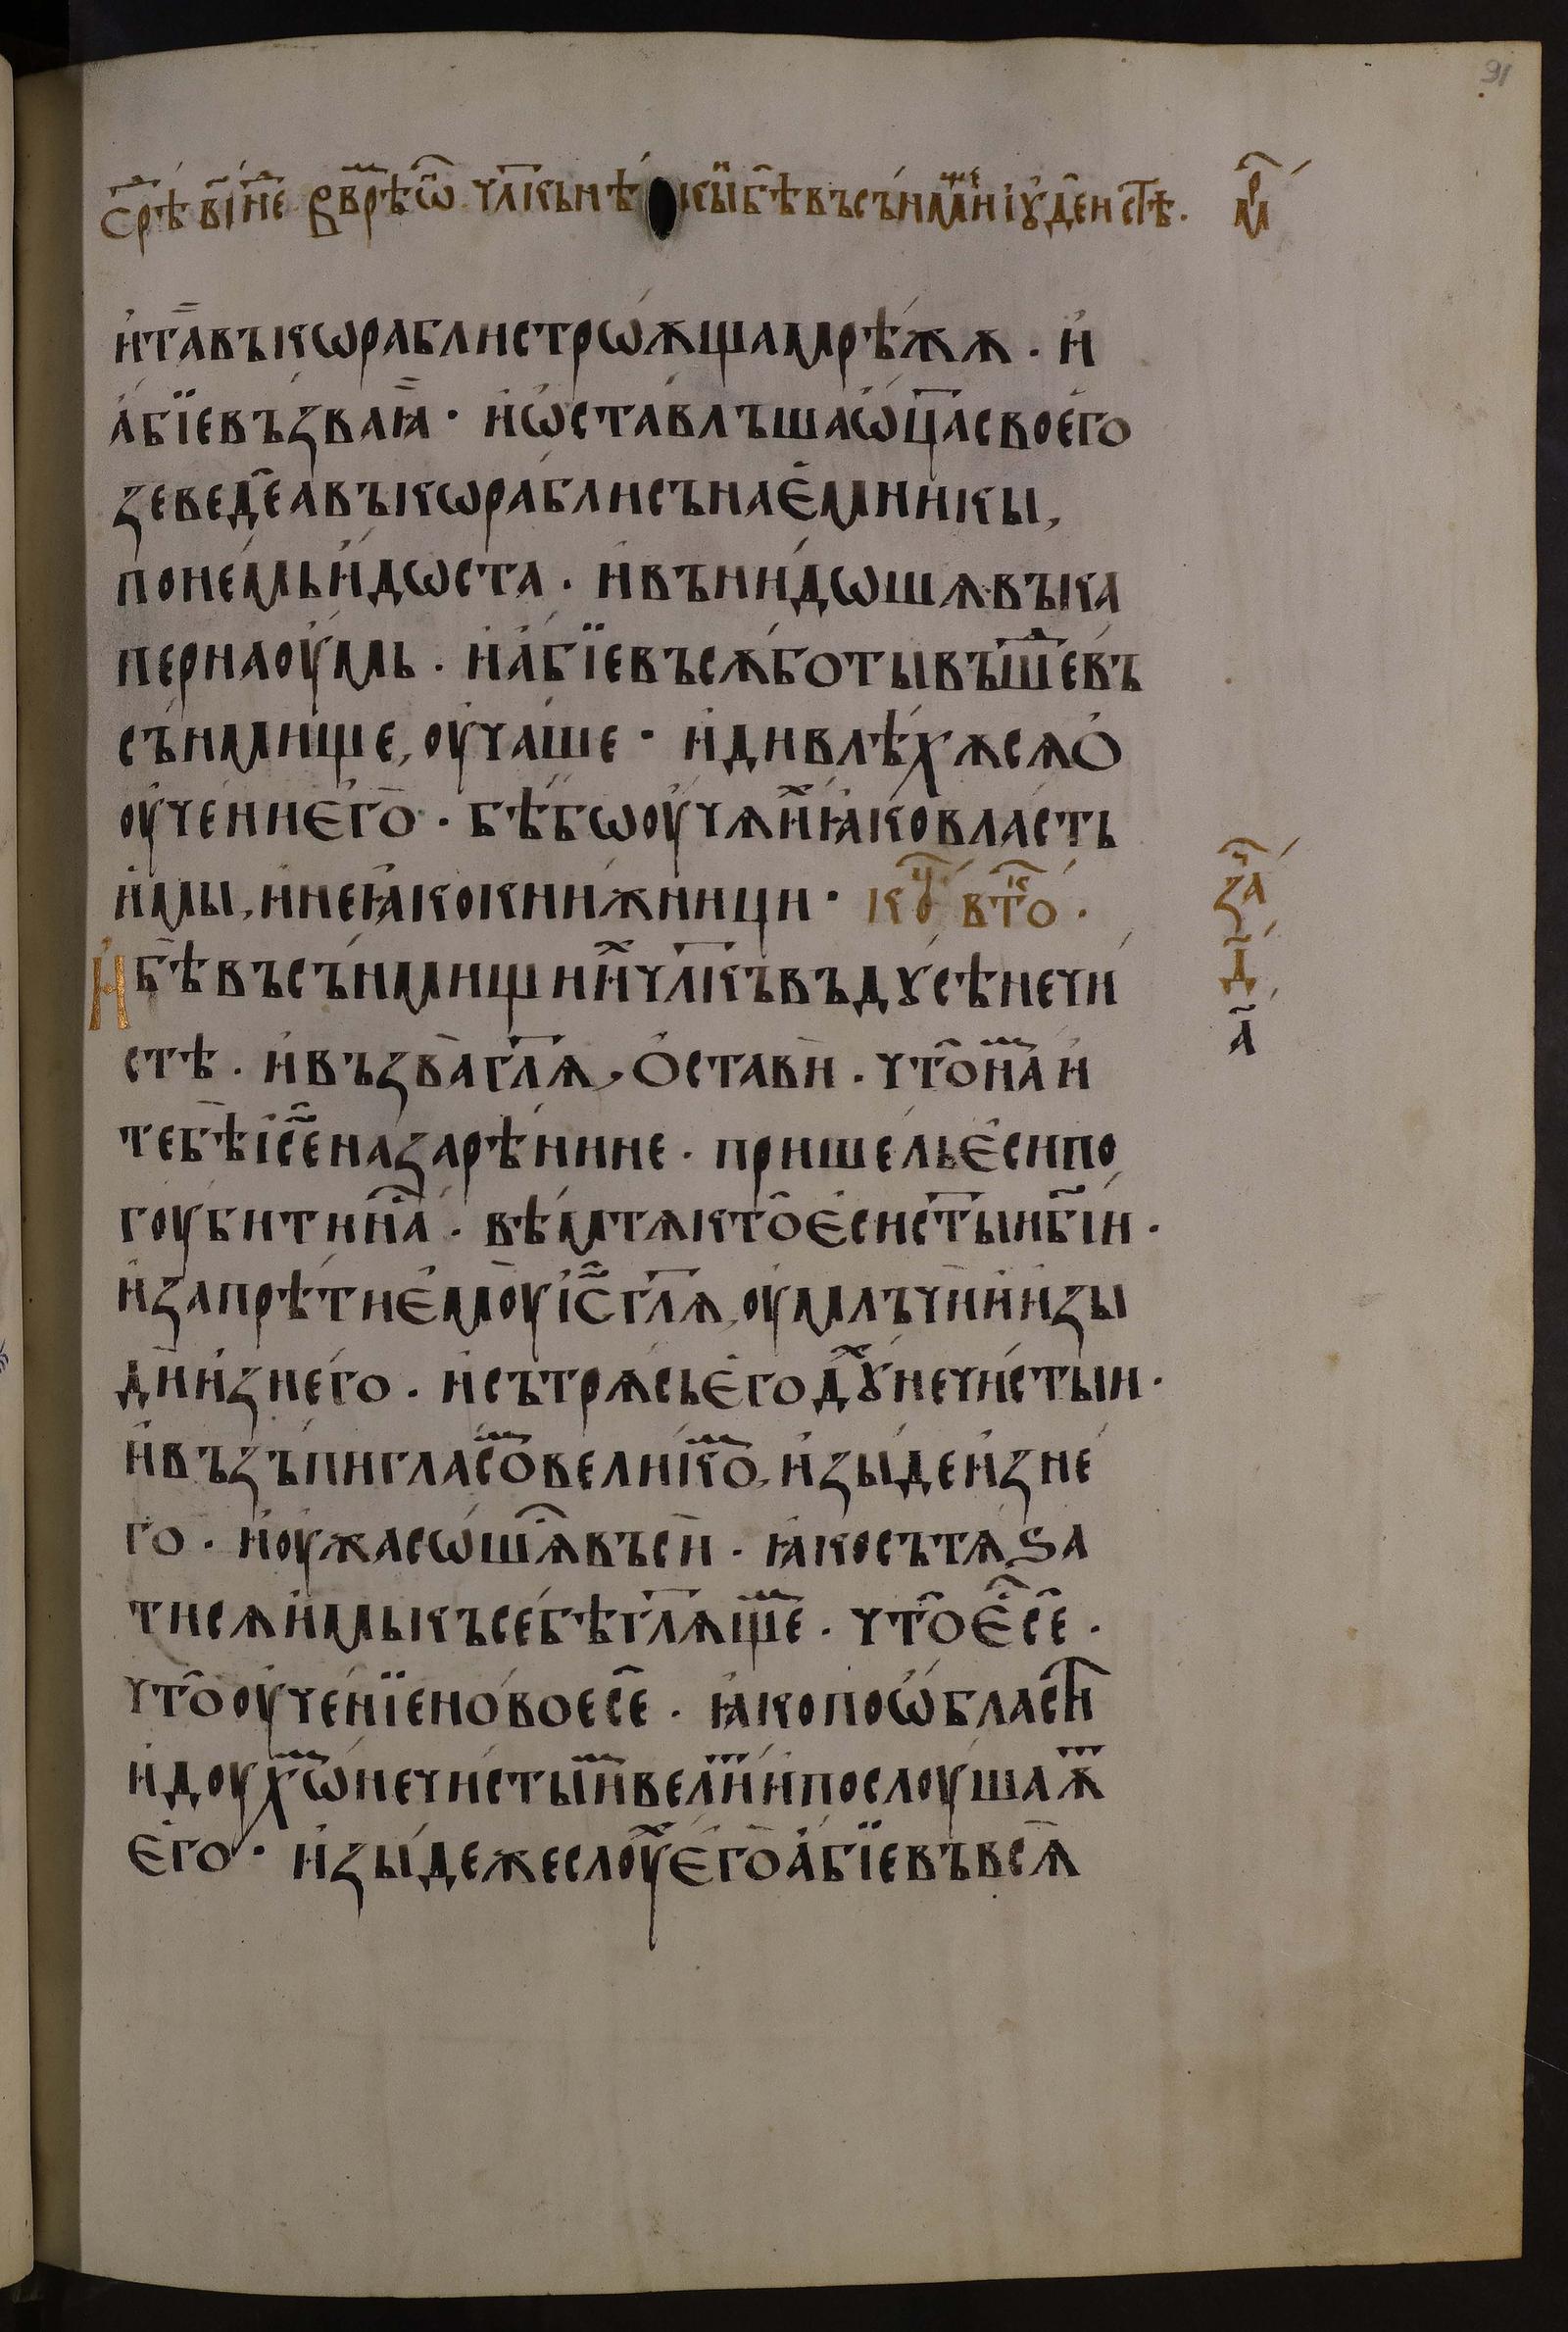 91
ср҇ѣ в҃і не҇ꙗ ꙋ врѣⷨѡ҃ чл҃кь нѣкьⷪ҇и бѣ въ сънмⷨи іꙋден стѣ · мⷬ҇
и҆та̀въкѡраблистрѡѫщамрѣжѫ · и҆
а҆бїевъзваꙗ̀ · и҆ѡ҆ставлъшаѡ҆ц҃асвоего
зеведеавъкѡраблисънаемникы,
понемьи҆дѡста · и҆вънидѡшѧвъка
пернаоумь · и҆абїевъсѫботывъше́въ
сънмище, оучаше · и҆дивлѣхѫсѧо
оучениєго · бѣбѡоучѧи҆ⷯꙗковласть
и҆мы, и҆неꙗкокнижници · коⷰ҇ втоⷦ҇ · заⷱ҇
И҆бѣвъсънмищииⷯчл҃къвъдꙋсѣнечи д҃
стѣ · и҆възвагл҃ѧ, остави · чтонаⷨи҆ а҃
тебѣі҆с҃еназарѣнине · пришельєсипо
гоубитинаⷭ · вѣмтѧктоєсист҃ыиб҃їи ·
и҆запрѣтиємоуі҆с҃гл҃ѧ, оумлъчиии҆зы
дии҆знего · и҆сътрѧсьєгодⷯꙋнечистыи ·
и҆възъпигласоⷨвеликоⷨ, и҆зыдеи҆зне
го · и҆оужасѡшѧⷭвъси · ꙗкосътѧѕа
тисѧи҆мькъсебѣгл҃ѧщеⷨ · чтоєⷭсе ·
чтооученїеновоесе · ꙗкопоѡбластⷩи
и҆доухѡⷨнечистыиⷨвелиⷮи҆послоушаѫⷮ
єго · и҆зыдежеслоуⷯєгоабїевъвсѧ